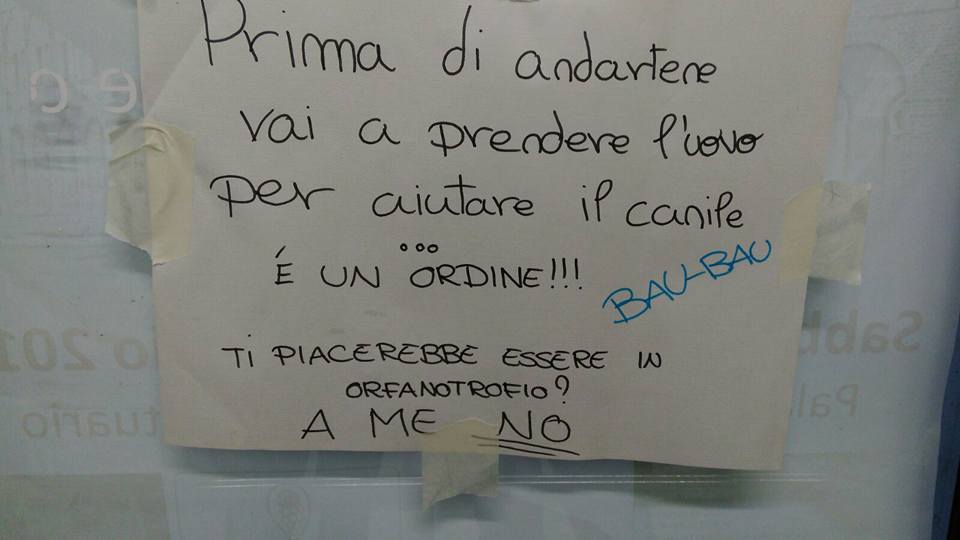 Prima di andartene
vai a prendere l'uovo
per aiutare il canile
°°°
É UN ORDINE!!!
BAU-BAU
TI PIACEREBBE ESSERE IN
ORFANOTROFIO?
A ME NO
e c
Sabb
o 201
Pal
tuario